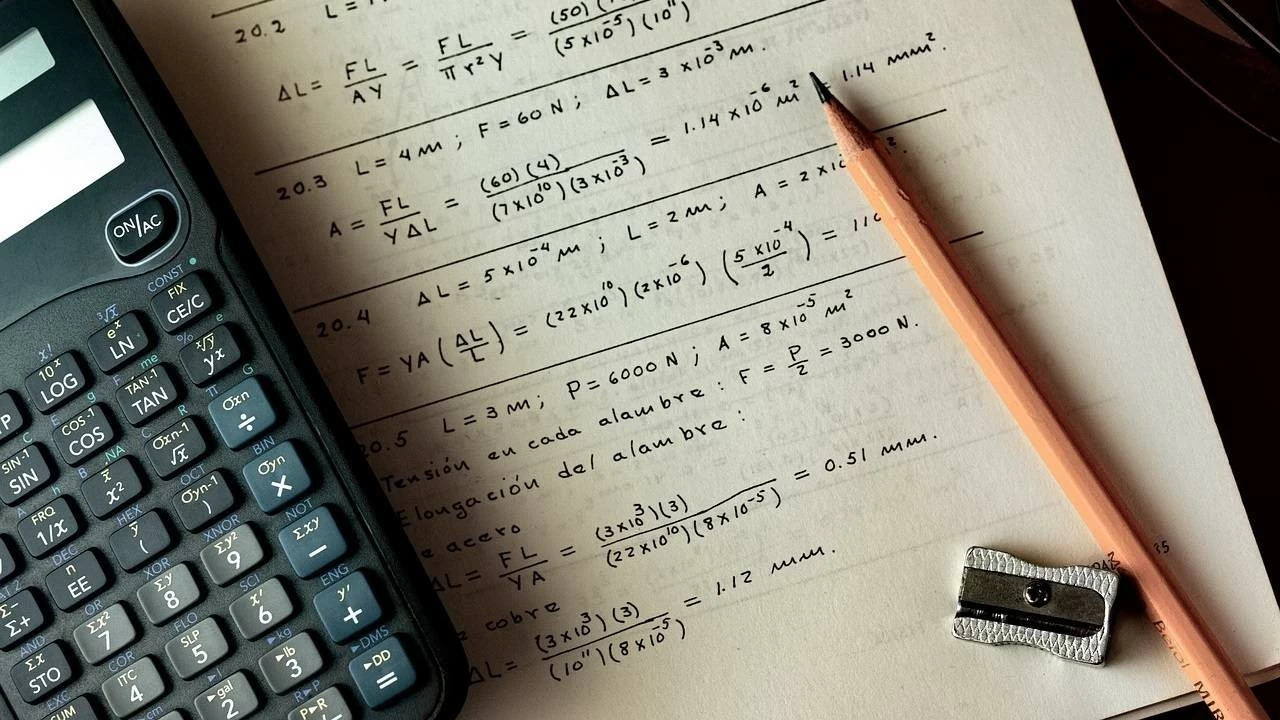 20.2 L = 1
ΔL = FL/AY = FL/πr²Y = (50)/(5×10⁻⁵)(10¹¹)
20.3 L = 4 m ; F = 60 N ; ΔL = 3 ×10⁻³ m.
A = FL/YΔL = (60)(4)/(7×10¹⁰)(3×10⁻³) = 1.14 ×10⁻⁶ m² = 1.14 mm².
20.4 ΔL = 5×10⁻⁴ m ; L = 2 m ; A = 2×10
F = YA(ΔL/L) = (22×10¹⁰)(2×10⁻⁶)(5×10⁻⁴/2) = 110
20.5 L = 3 m ; P = 6000 N ; A = 8×10⁻⁵ m²
Tensión en cada alambre : F = P/2 = 3000 N.
Elongación del alambre :
e acero
ΔL = FL/YA = (3×10³)(3)/(22×10¹⁰)(8×10⁻⁵) = 0.51 mm.
cobre
ΔL = (3×10³)(3)/(10¹¹)(8×10⁻⁵) = 1.12 mm.
ON/AC
CONST FIX CE/C
³√x eˣ LN % ˣ√y yx e
x! 10ˣ LOG F TAN⁻¹ TAN me π σxn ÷ G
P E COS⁻¹ COS g C σxn-1 √x R BIN σyn ×
C SIN⁻¹ SIN B x̄ x² NA OCT σyn-1 ) NOT Σxy −
A FRQ 1/x h HEX ȳ ( XNOR Σy² 9 ENG y' +
DEC n EE XOR Σy 8 SCI x' 6 ►DMS ►DD =
Σ− Σ+ OR Σx² 7 FLO SLP 5 ►kg ►lb 3
AND Σx STO COR ITC 4 ►l ►gal 2 R►P P►R
EXC SUM cm
Berol MIR